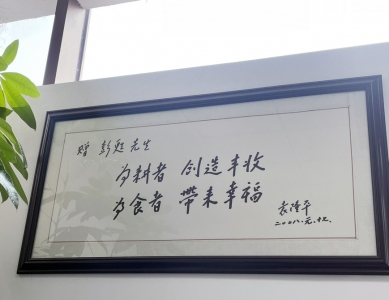 赠 彭赳先生
为耕者 创造丰收
为食者 带来幸福
袁隆平
二〇〇八.元.廿.